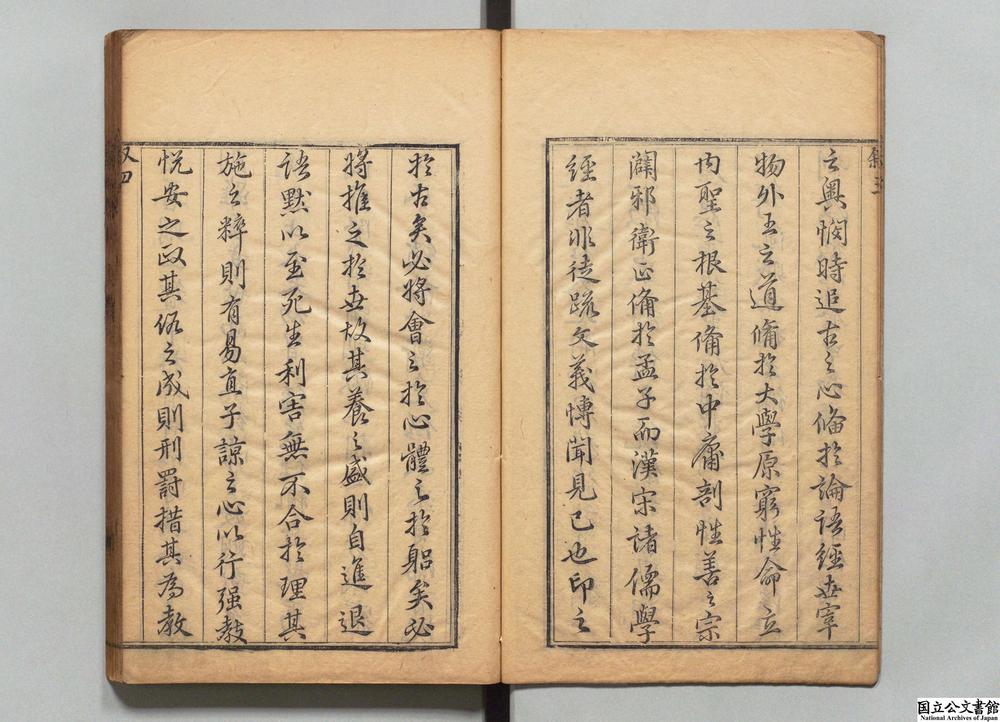 之輿憫時追古之心備於論語經世宰
物外王之道備於大學原窮性命立
內聖之根基備於中庸剖性善之宗
闢邪衛正備於孟子而漢宋諸儒學
經者非徒疏文義博聞見已也印之
於古矣必將會之於心體之於躬矣必
將推之於世故其養之盛則自進退
語默以至死生利害無不合於理其
施之粹則有易直子諒之心以行强教
悅安之政其俗之成則刑罰措其為教
叙四
国立公文書館
National Archives of Japan